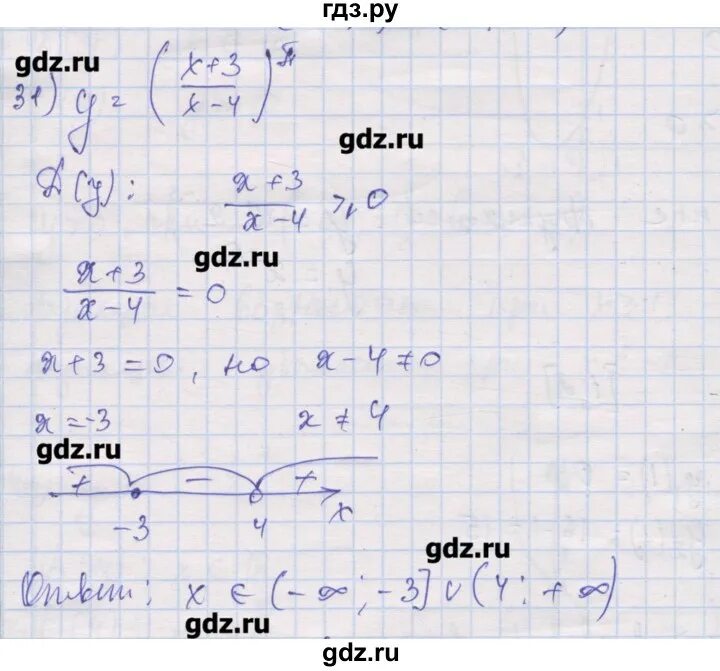 гдз.ру
gdz.ru
31) y = ((x+3)/(x-4))^π
gdz.ru
D(y): (x+3)/(x-4) ≥ 0
gdz.ru
(x+3)/(x-4) = 0
x+3=0, но x-4≠0
x=-3 x≠4
gdz.ru
+ − +
-3 4 x
gdz.ru
Ответ: x ∈ (-∞; -3] ∪ (4; +∞)
gdz.ru
gdz.ru